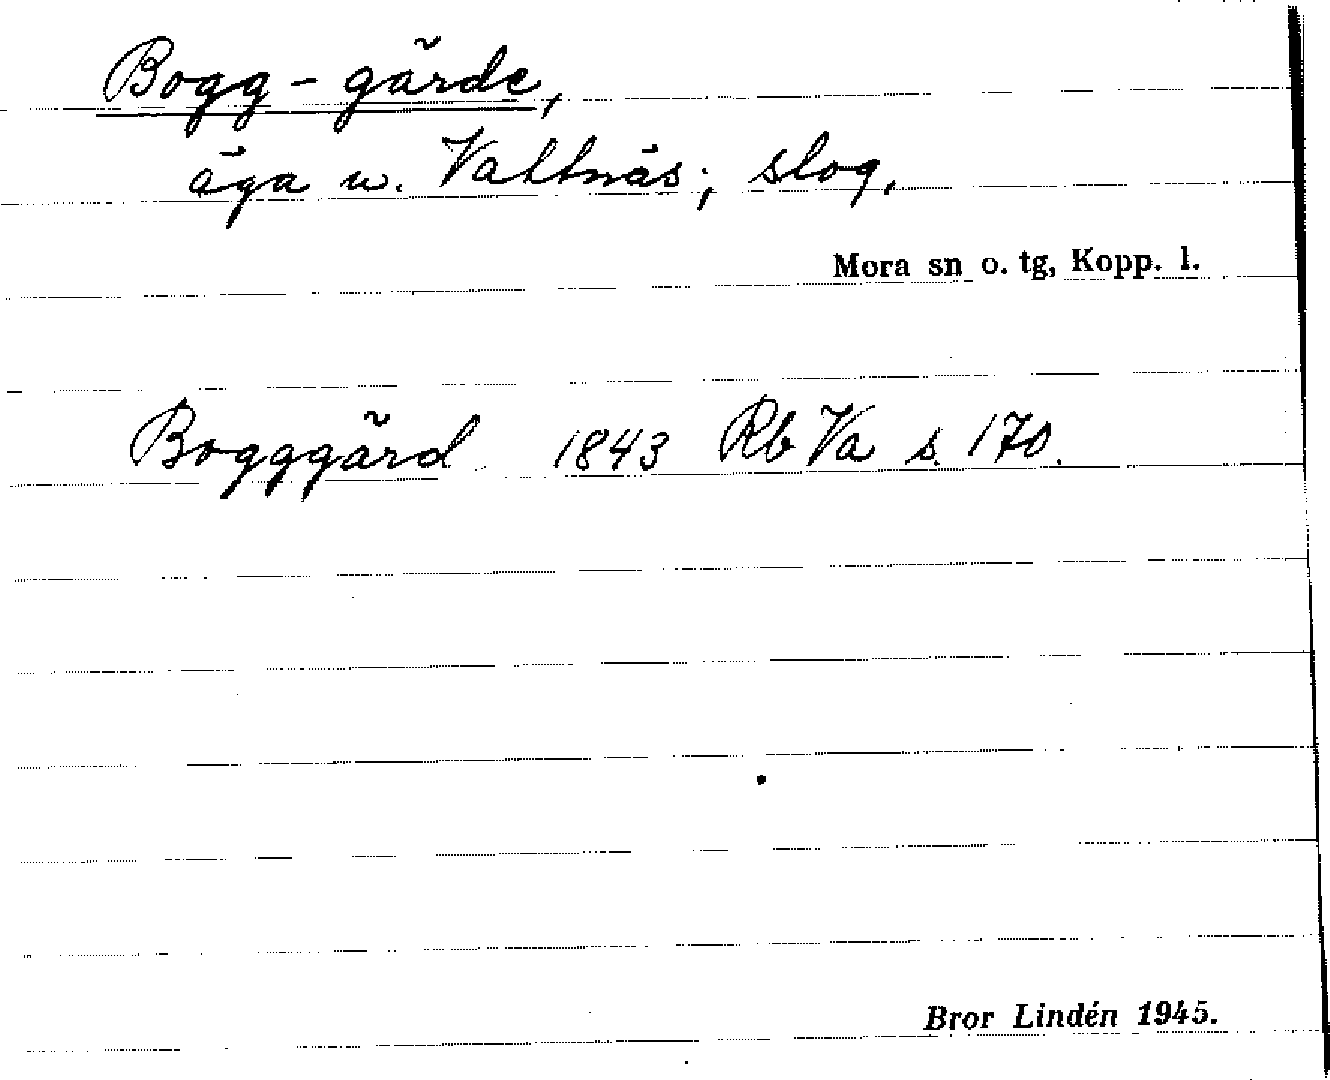 Bogg-gärde,
äga u. Vattnäs; slog.
Mora sn o. tg, Kopp. l.
Bogggärd 1843 Rb Va s. 170.
Bror Lindén 1945.